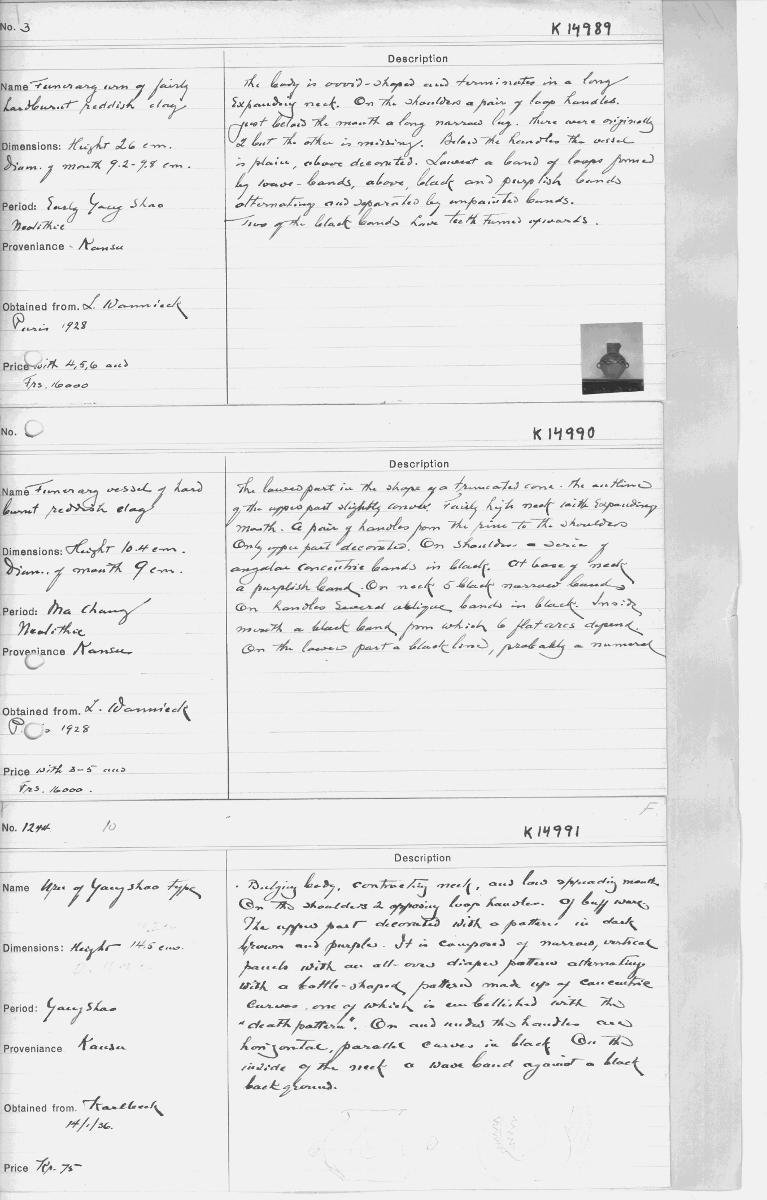 No. 3
K 14989
Description
Name Funerary urn of fairly
hardburnt reddish clay
Dimensions: Height 26 cm.
Diam. of mouth 9.2-9.8 cm.
Period: Early Yang Shao
Neolithic
Proveniance - Kansu
Obtained from. L. Wannieck
Paris 1928
Price with 4,5,6 and
Frs. 16000
The body is ovoid-shaped and terminates in a long
expanding neck. On the shoulders a pair of loop handles.
Just below the mouth a long narrow lug. There were originally
2 but the other is missing. Below the handles the vessel
is plain, above decorated. Lowest a band of loops formed
by wave-bands, above, black and purplish bands
alternating and separated by unpainted bands.
Two of the black bands have teeth turned upwards.
No.
K 14990
Description
Name Funerary vessel of hard
burnt reddish clay
Dimensions: Height 10.4 cm.
Diam. of mouth 9 cm.
Period: Ma Chang
Neolithic
Proveniance Kansu
Obtained from. L. Wannieck
P s 1928
Price with 3-5 and
Frs. 16000.
The lower part in the shape of a truncated cone. The outline
of the upper part slightly convex. Fairly high neck with expanding
mouth. A pair of handles from the rim to the shoulders
Only upper part decorated. On shoulders a series of
angular concentric bands in black. At base of neck
a purplish band. On neck 5 black narrow bands
On handles several oblique bands in black. Inside
mouth a black band from which 6 flat arcs depend.
On the lower part a black line, probably a numeral
F.
No. 1244 10
K 14991
Description
Name Urn of Yang shao type
Dimensions: Height 14.5 cms.
Period: Yang Shao
Proveniance Kansu
Obtained from. Karlbeck
14/1/36.
Price Kr. 75
Bulging body, contracting neck, and low spreading mouth
On the shoulders 2 opposing loop handles. Of buff ware
The upper part decorated with a pattern in dark
brown and purple. It is composed of narrow, vertical
panels with an all-over diaper pattern alternating
with a bottle-shaped pattern made up of concentric
curves, one of which is embellished with the
"death pattern". On and under the handles are
horizontal, parallel curves in black. On the
inside of the neck a wave band against a black
back ground.